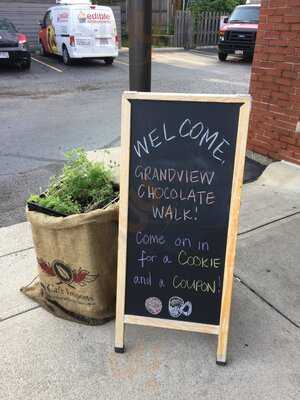 edible
WELCOME,
GRANDVIEW
CHOCOLATE
WALK!
Come on in
for a COOKIE
and a COUPON!